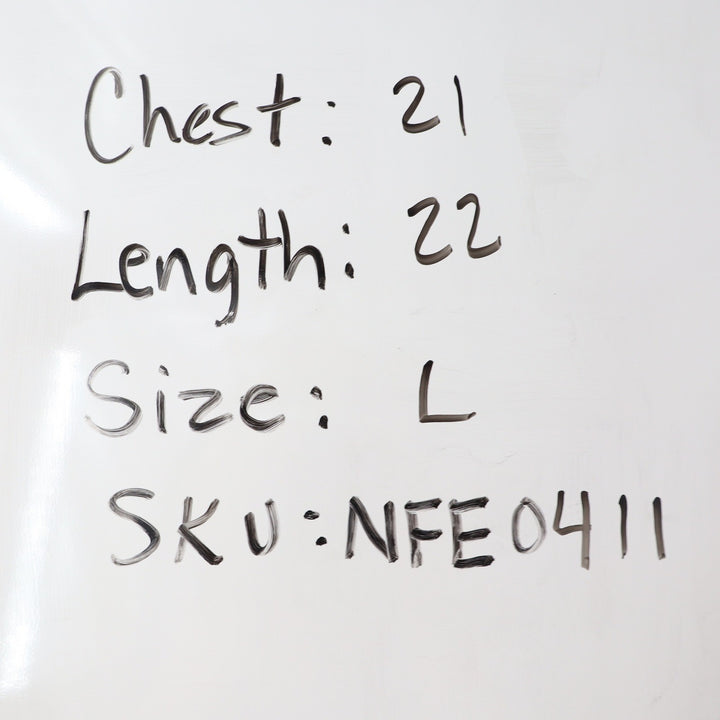 Chest: 21
Length: 22
Size: L
SKU: NFE0411